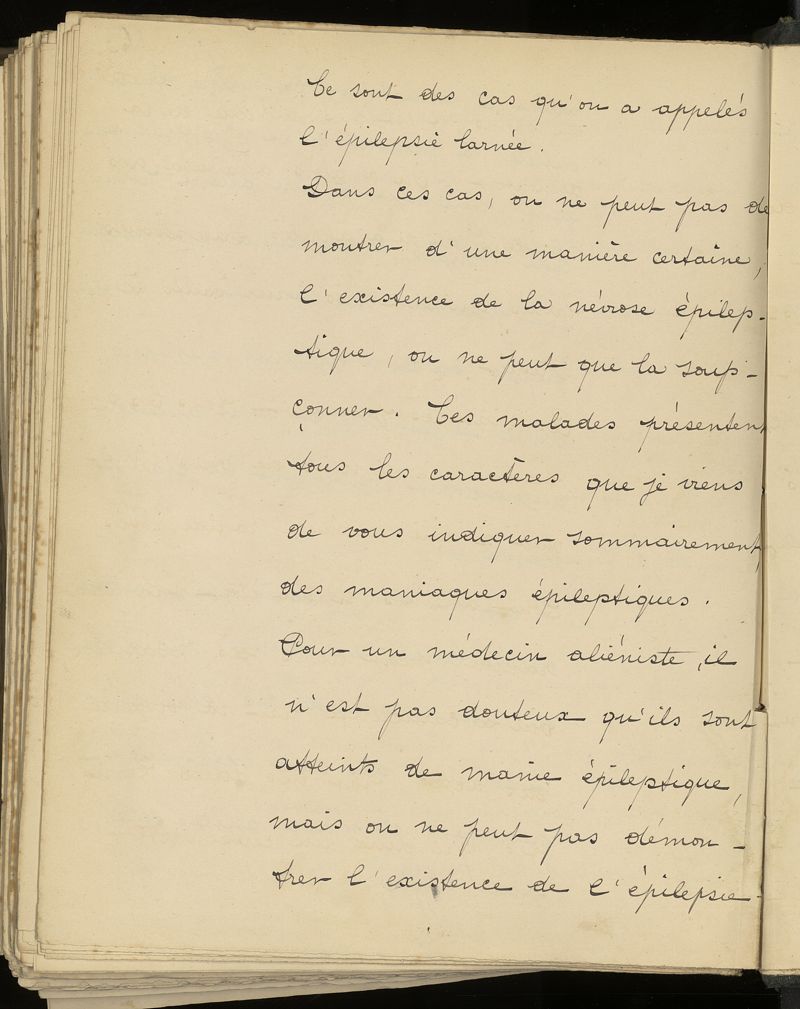 Ce sont des cas qu'on a appelés
l'épilepsie larvée.
Dans ces cas, on ne peut pas dé
montrer d'une manière certaine,
l'existence de la névrose épilep-
tique, on ne peut que la soup-
çonner. Ces malades présentent
tous les caractères que je viens
de vous indiquer sommairement,
des maniaques épileptiques.
Pour un médecin aliéniste, il
n'est pas douteux qu'ils sont
atteints de manie épileptique,
mais on ne peut pas démon-
trer l'existence de l'épilepsie.